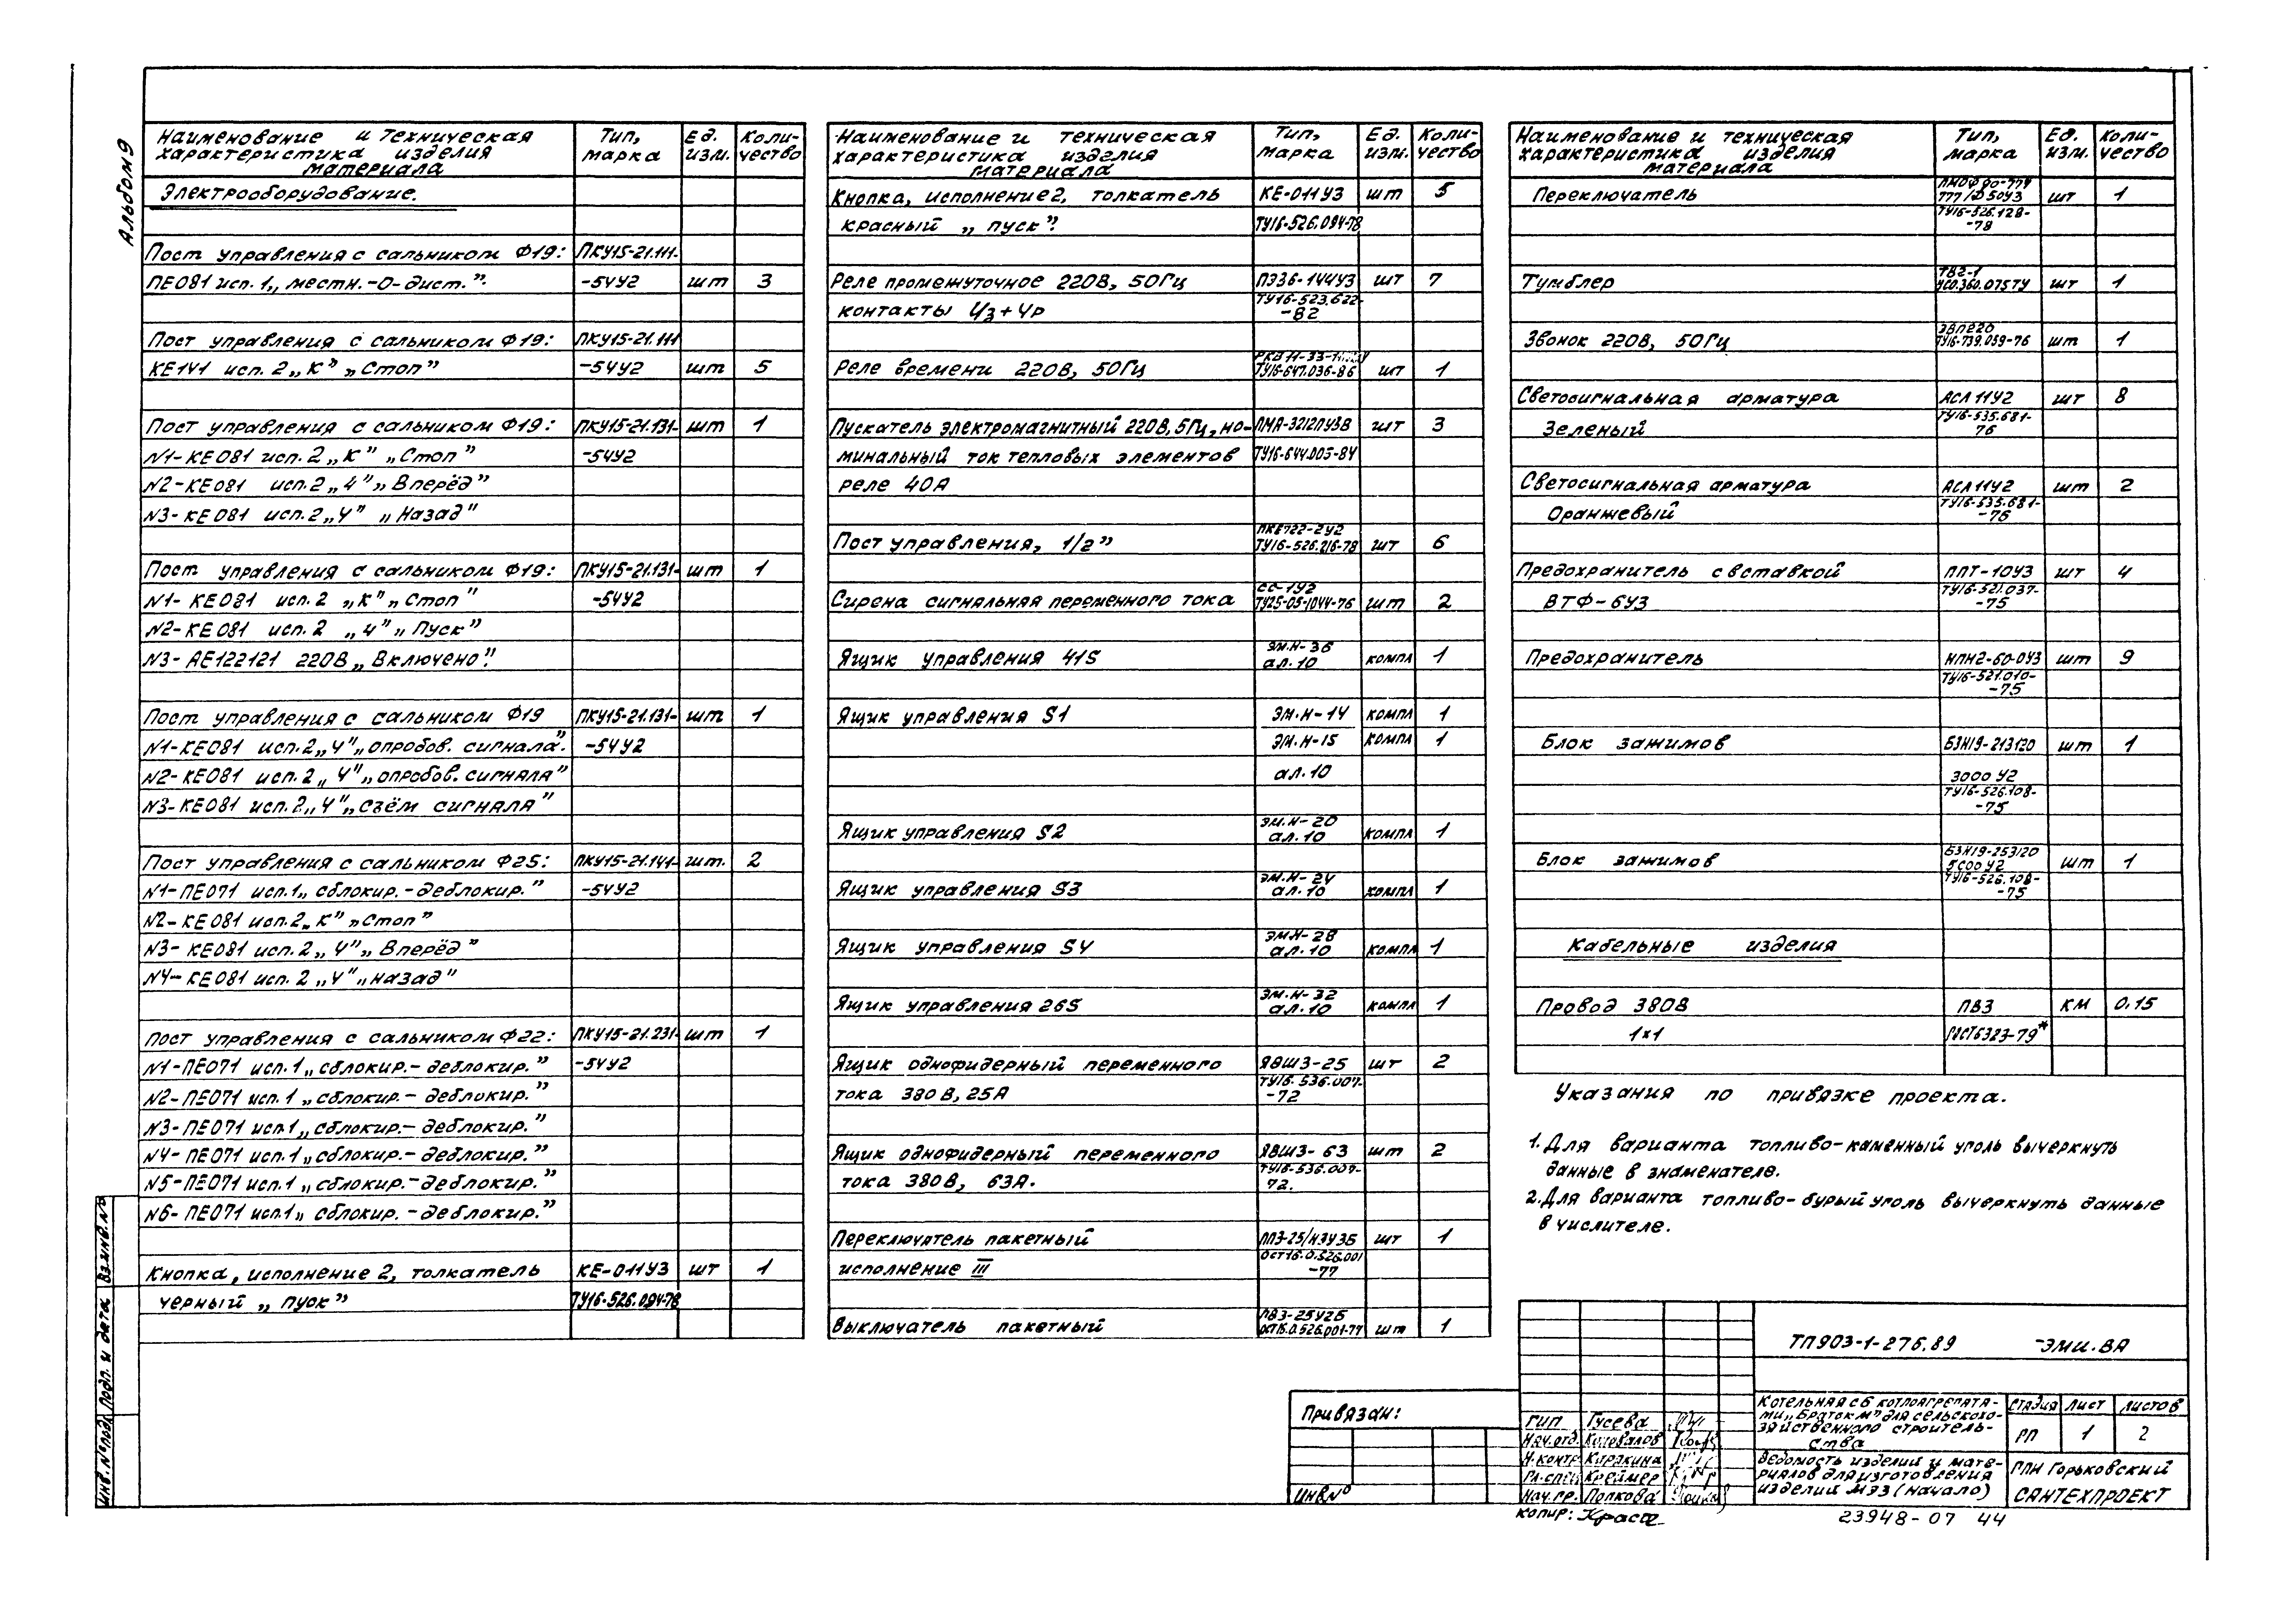 Альбом 9
Наименование и техническая характеристика изделия материала
Тип, марка
Ед. изм.
Количество
Электрооборудование.
Пост управления с сальником Ф19: ПКУ15-21.111-
ПЕ081 исп. 1„ местн.-О-дист.". -54У2 шт 3
Пост управления с сальником Ф19: ПКУ15-21.111
КЕ141 исп. 2 „К" „Стоп" -54У2 шт 5
Пост управления с сальником Ф19: ПКУ15-21.131- шт 1
N1-КЕ081 исп. 2 „К" „Стоп" -54У2
N2-КЕ081 исп. 2 „Ч" „Вперёд"
N3-КЕ081 исп. 2 „Ч" „Назад"
Пост управления с сальником Ф19: ПКУ15-21.131- шт 1
N1-КЕ081 исп. 2 „К" „Стоп" -54У2
N2-КЕ081 исп. 2 „Ч" „Пуск"
N3-АЕ122121 220В „Включено".
Пост управления с сальником Ф19 ПКУ15-21.131- шт 1
N1-КЕ081 исп. 2 „Ч" „опробов. сигнала". -54У2
N2-КЕ081 исп. 2 „Ч" „опробов. сигнала"
N3-КЕ081 исп. 2 „Ч" „съём сигнала"
Пост управления с сальником Ф25: ПКУ15-21.141- шт. 2
N1-ПЕ071 исп. 1„ сблокир.-деблокир." -54У2
N2-КЕ081 исп. 2 „К" „Стоп"
N3-КЕ081 исп. 2 „Ч" „Вперёд"
N4-КЕ081 исп. 2 „Ч" „Назад"
Пост управления с сальником Ф22: ПКУ15-21.231- шт 1
N1-ПЕ071 исп. 1 „сблокир.-деблокир." -54У2
N2-ПЕ071 исп. 1 „сблокир.-деблокир."
N3-ПЕ071 исп. 1 „сблокир.-деблокир."
N4-ПЕ071 исп. 1 „сблокир.-деблокир."
N5-ПЕ071 исп. 1 „сблокир.-деблокир."
N6-ПЕ071 исп. 1 „сблокир.-деблокир."
Кнопка, исполнение 2, толкатель КЕ-011У3 шт 1
черный „пуск" ТУ16-526.094-78
Наименование и техническая характеристика изделия материала
Тип, марка
Ед. изм.
Количество
Кнопка, исполнение 2, толкатель КЕ-011У3 шт 5
красный „пуск". ТУ16-526.094-78
Реле промежуточное 220В, 50Гц ПЭ36-144У3 шт 7
контакты 4з+4р ТУ16-523.622-82
Реле времени 220В, 50Гц ТУ16-647.036-86 шт 1
Пускатель электромагнитный 220В, 5Гц, но- ПМА-3212ПУ3В шт 3
минальный ток тепловых элементов ТУ16-644.005-84
реле 40А
Пост управления, 1/2" ПКЕ722-2У2 ТУ16-526.216-78 шт 6
Сирена сигнальная переменного тока СС-1У2 ТУ25-05-1044-76 шт 2
Ящик управления 41S ЭМ.Н-36 ал.10 компл 1
Ящик управления S1 ЭМ.Н-14 компл 1
ЭМ.Н-15 компл 1
ал.10
Ящик управления S2 ЭМ.Н-20 ал.10 компл 1
Ящик управления S3 ЭМ.Н-24 ал.10 компл 1
Ящик управления S4 ЭМ.Н-28 ал.10 компл 1
Ящик управления 26S ЭМ.Н-32 ал.10 компл 1
Ящик однофидерный переменного ЯВШ3-25 шт 2
тока 380В, 25А ТУ16.536.007-72
Ящик однофидерный переменного ЯВШ3-63 шт 2
тока 380В, 63А. ТУ16-536.007-72.
Переключатель пакетный ПП3-25/Н3У3Б шт 1
исполнение III ОСТ16.0.526.001-77
Выключатель пакетный ПВ3-25У2Б ОСТ16.0.526.001-77 шт 1
Наименование и техническая характеристика изделия материала
Тип, марка
Ед. изм.
Количество
Переключатель шт 1
ТУ16-526.128-78
Тумблер ТВ2-1 УСО.360.075ТУ шт 1
Звонок 220В, 50Гц ЗВП220 ТУ16-739.059-76 шт 1
Светосигнальная арматура АСЛ11У2 шт 8
Зеленый ТУ16-535.681-76
Светосигнальная арматура АСЛ11У2 шт 2
Оранжевый ТУ16-535.681-76
Предохранитель с вставкой ППТ-10У3 шт 4
ВТФ-6У3 ТУ16-521.037-75
Предохранитель НПН2-60-0У3 шт 9
ТУ16-521.010-75
Блок зажимов БЗН19-213120 шт 1
3000 У2
ТУ16-526.108-75
Блок зажимов БЗН19-253120 5С00У2 шт 1
ТУ16-526.108-75
Кабельные изделия
Провод 380В ПВ3 км 0.15
1×1 ГОСТ6323-79*
Указания по привязке проекта.
1. Для варианта топливо-каменный уголь вычеркнуть
данные в знаменателе.
2. Для варианта топливо-бурый уголь вычеркнуть данные
в числителе.
Инв.№подл. Подп. и дата Вз.инв.№
Привязан:
Инв.№
ГИП Гусева
Нач.отд. Коновалов
Н.контр Карякина
Гл.спец Креймер
Нач.гр. Попкова
ТП903-1-276.89 -ЭМИ.ВА
Котельная с 6 котлоагрегата-
ми „Братск-М" для сельскохо-
зяйственного строитель-
ства
Стадия Лист Листов
РП 1 2
Ведомость изделий и мате-
риалов для изготовления
изделий МЭЗ (начало)
ГПИ Горьковский
САНТЕХПРОЕКТ
копир:
23948-07 44